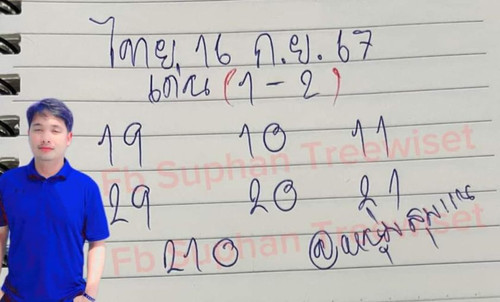 ไทย 16 ก.ย. 67
เด่น (1-2)
19 10 11
Fb Suphan Treewiset
29 20 21
210 อ.หนุ่มสุพรรณ
Fb Suphan Treewiset